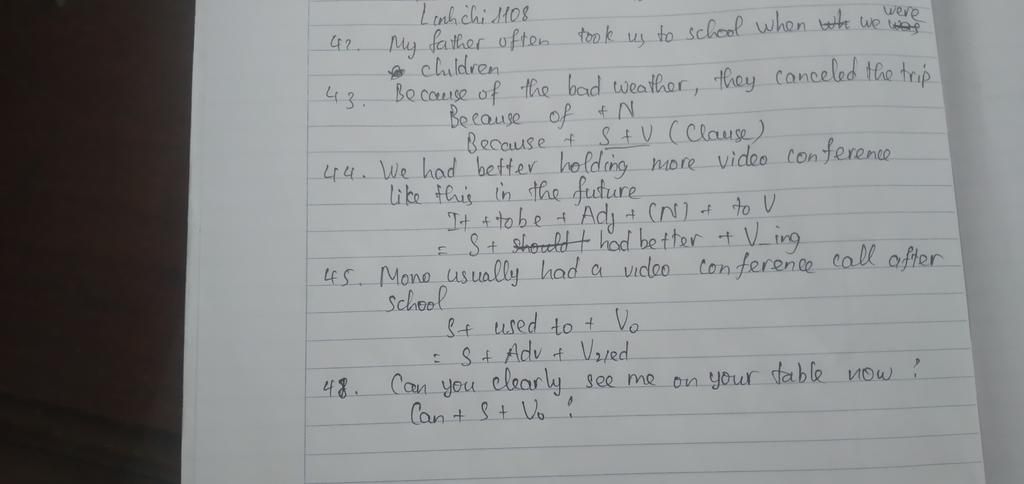 Linhchi 1108
42. My father often took us to school when we were
children
43. Because of the bad weather, they canceled the trip
Because of + N
Because + S + V (Clause)
44. We had better holding more video conference
like this in the future
It + to be + Adj + (N) + to V
= S + should + had better + V_ing
45. Mono usually had a video conference call after
school
S + used to + V₀
= S + Adv + V2/ed
48. Can you clearly see me on your table now ?
Can + S + V₀ ?